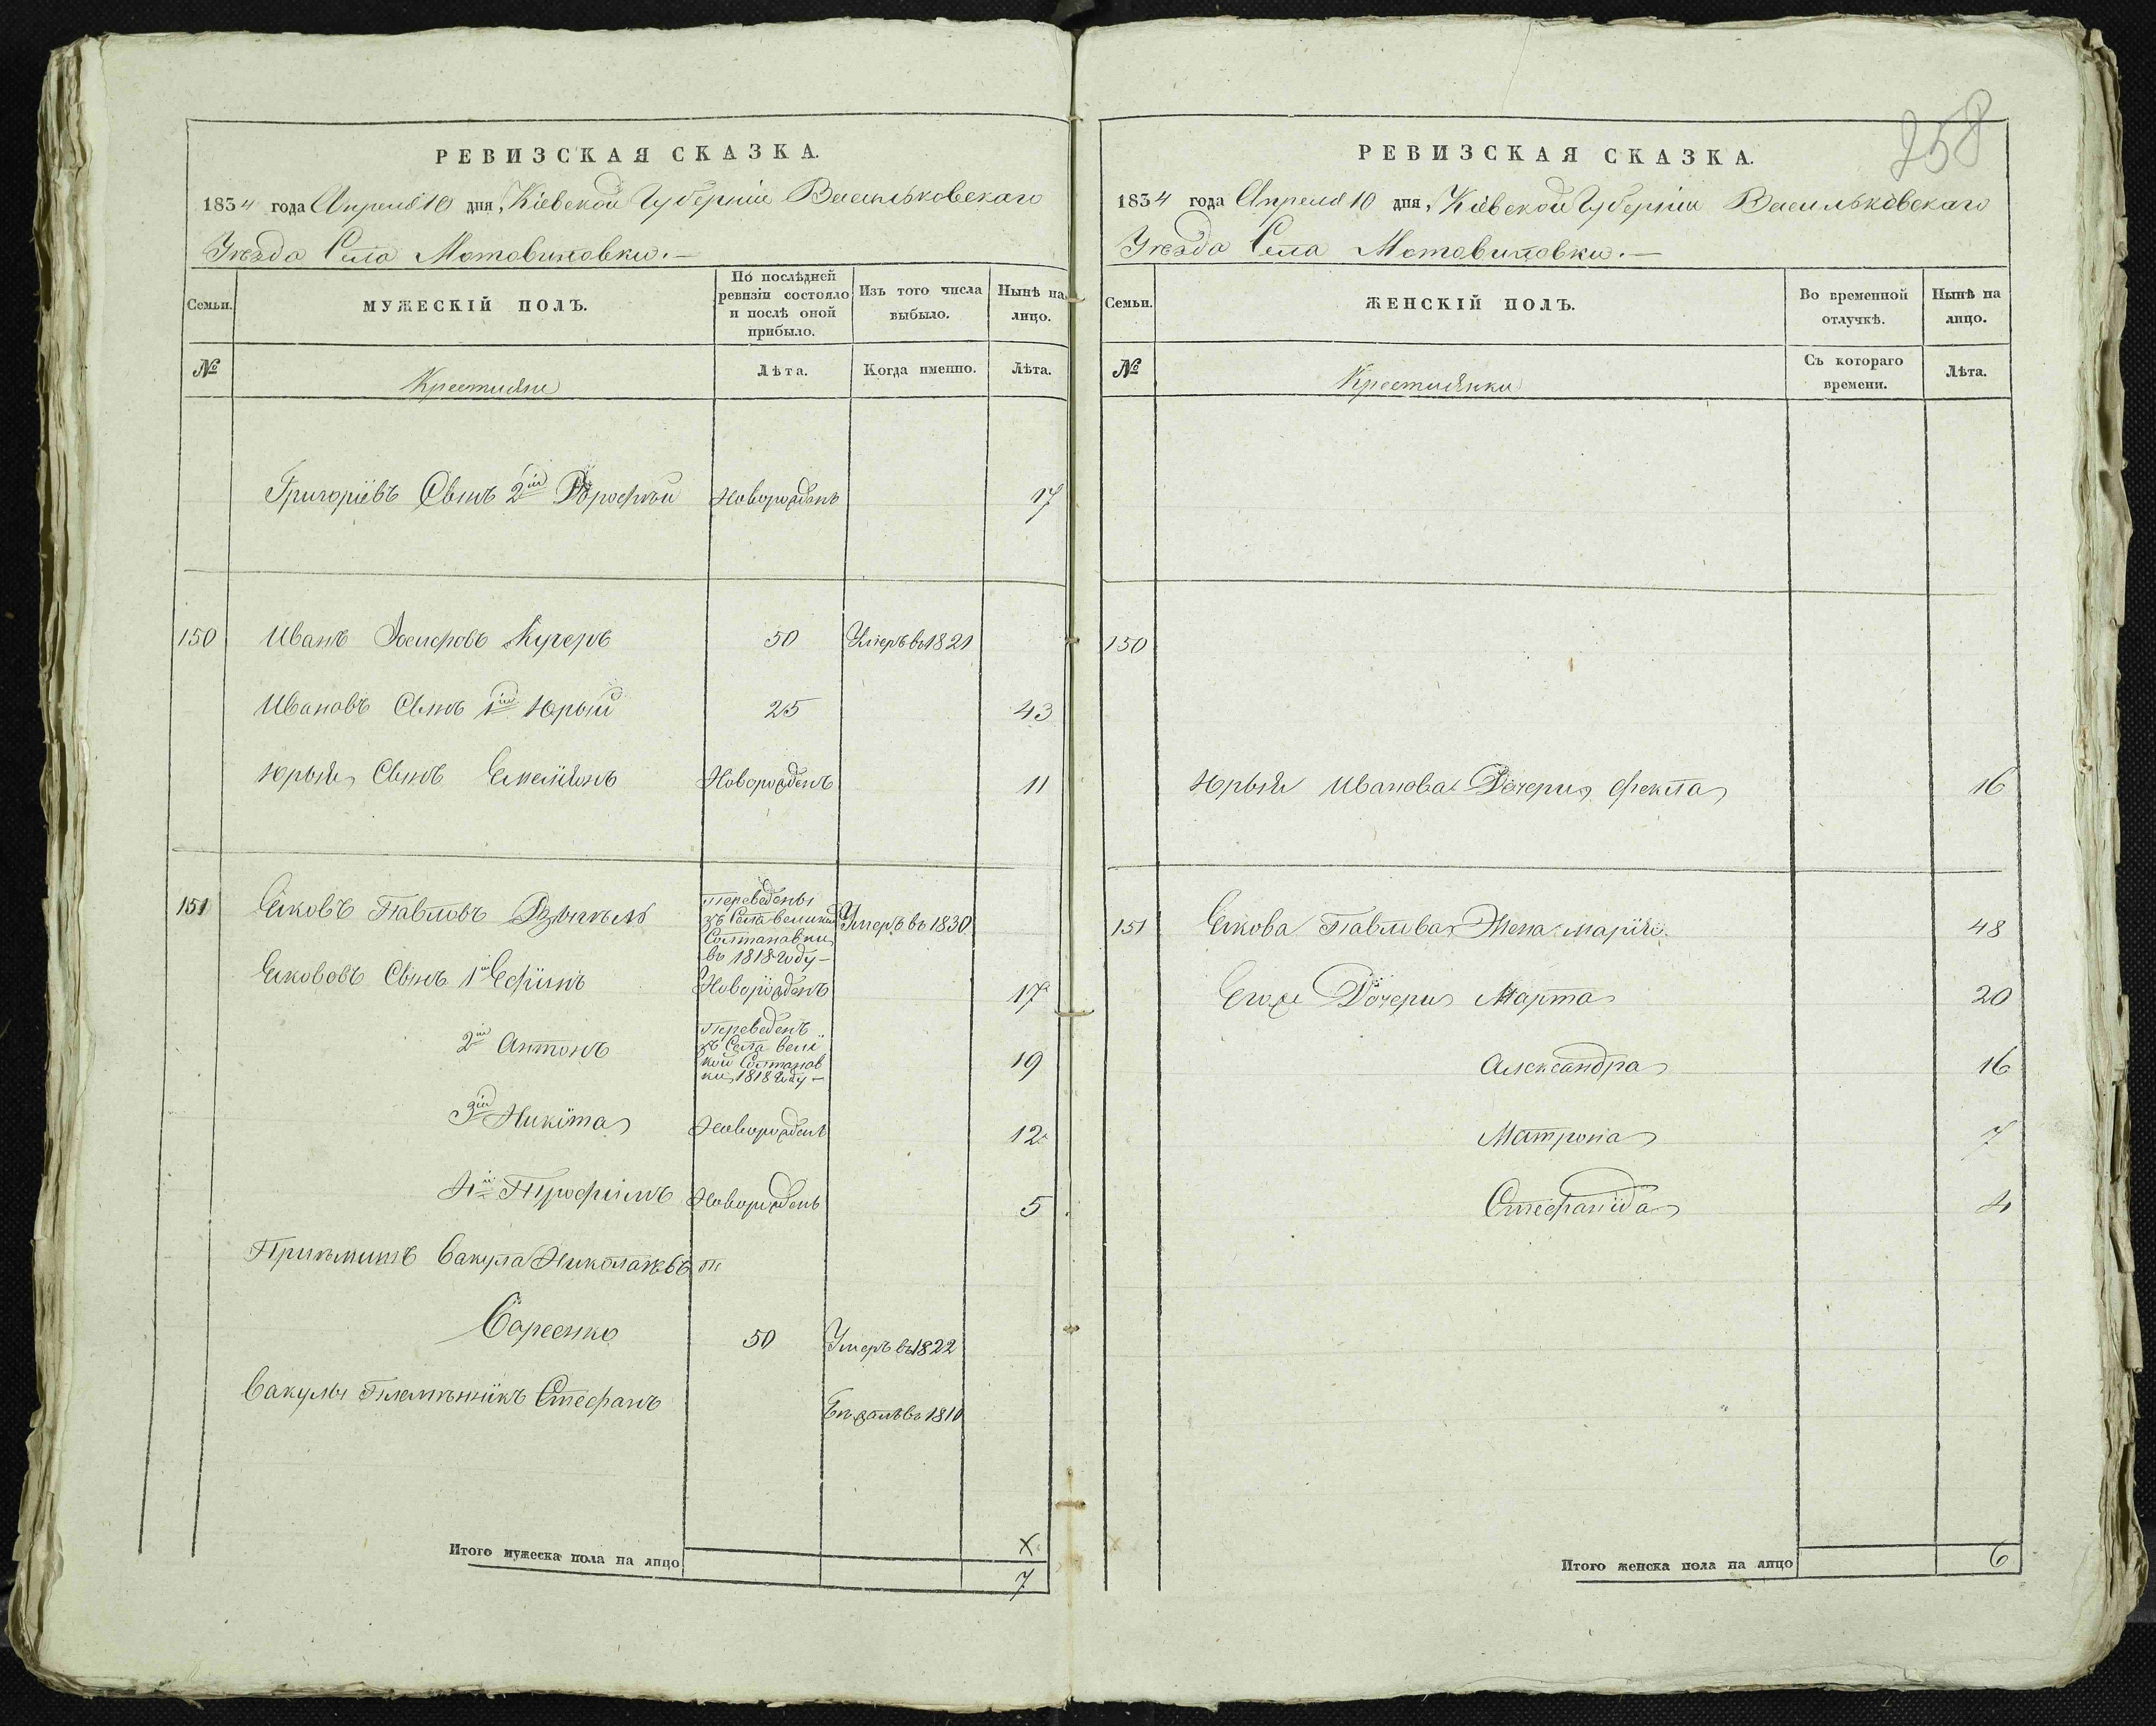 РЕВИЗСКАЯ СКАЗКА.
1834 года Апреля 10 дня, Кіевской Губерніи Васильковскаго
Уезда Села Мотовиловки.—
Семьи. МУЖЕСКІЙ ПОЛЪ. По послѣдней ревизіи состояло и послѣ оной прибыло. Изъ того числа выбыло. Нынѣ на лицо.
№ Крестияне Лѣта. Когда именно. Лѣта.
Григоріевъ Сынъ 2ій Дорофѣй Новорожденъ 17
150 Иванъ Кучеръ 50 Умеръ въ 1821
Ивановъ Сынъ 1й Юрый 25 43
Юрыя Сынъ Емелиянъ Новорожденъ 11
151 Еяковъ Павловъ Переведены зъ Села великой Солтановки въ 1818 Году — Умеръ въ 1830
Еякововъ Сынъ 1й Ефимъ Новорожденъ 17
2й Антонъ Переведенъ зъ Села вели
кой Солтанов
ки, 1818 Году — 19
3ій Никита Новорожденъ 12
4й Трофимъ Новорожденъ 5
Приймитъ Вакула Николаевъ
50 Умеръ въ 1822
Вакулы Племѣнникъ Стефанъ Бѣжалъ въ 1810
Итого мужеска пола на лицо
X
7
258
РЕВИЗСКАЯ СКАЗКА.
1834 года Апреля 10 дня, Кіевской Губерніи Васильковскаго
Уезда Села Мотовиловки.—
Семьи. ЖЕНСКІЙ ПОЛЪ. Во временной отлучкѣ. Нынѣ на лицо.
№ Крестиянки Съ котораго времени. Лѣта.
150
Юрыя Иванова Дочеря Фекла 16
151 Еякова Павлова Жена Марія 48
Егоже Дочери Марта 20
Александра 16
Матрона 7
Стефанида 4
Итого женска пола на лицо 6